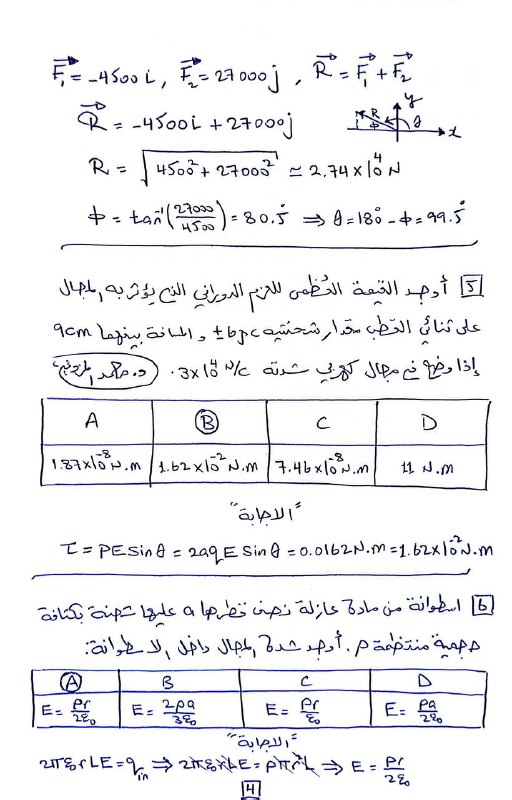 F₁ = -4500 i , F₂ = 27000 j , R = F₁ + F₂
R = -4500 i + 27000 j
y R φ θ x
R = √(4500² + 27000²) ≃ 2.74×10⁴ N
φ = tan⁻¹(27000/4500) = 80.5° ⇒ θ = 180° - φ = 99.5°
5 أوجد القيمة العُظمى للعزم الدوراني الذي يؤثر به المجال
على ثنائي القطب مقدار شحنتيه ±6pc و المسافة بينهما 9cm
إذا وضع في مجال كهربي شدته 3×10⁴ N/c. د.
A B C D
1.87×10⁻⁸ N.m 1.62×10⁻² N.m 7.46×10⁻⁸ N.m 11 N.m
"الاجابة"
τ = PE Sin θ = 2aqE Sin θ = 0.0162 N.m = 1.62×10⁻² N.m
6 اسطوانة من مادة عازلة نصف قطرها a عليها شحنة بكثافة
حجمية منتظمة ρ. أوجد شدة المجال داخل الاسطوانة:
A B C D
E = ρr/2ε₀ E = 2ρa/3ε₀ E = ρr/ε₀ E = ρa/2ε₀
"الاجابة"
2πε₀rLE = q in ⇒ 2πε₀rLE = ρπr²L ⇒ E = ρr/2ε₀
4